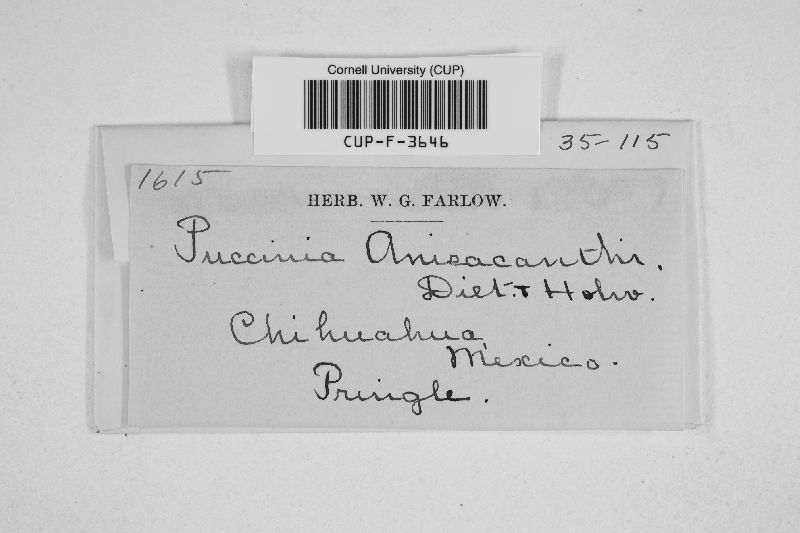 Cornell University (CUP)
CUP-F-3646
35-115
1615
HERB. W. G. FARLOW.
Puccinia Anisacanthi.
Diet. & Holw.
Chihuahua
Mexico.
Pringle.